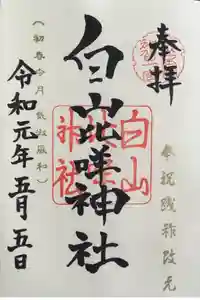 奉拝
奉祝践祚改元
白山比咩神社
白山比咩神社
令和元年五月五日
(初春令月気淑風和)